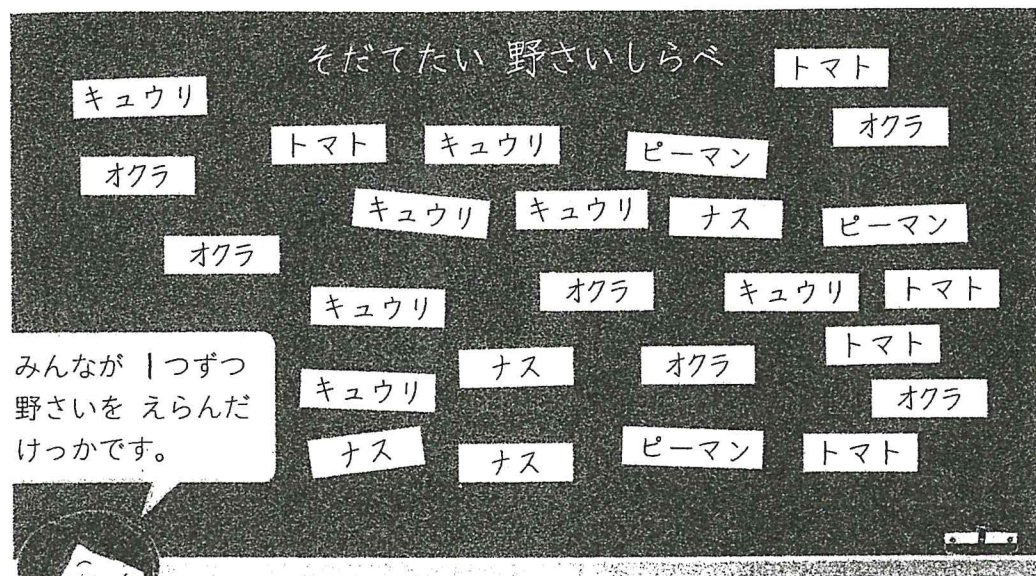 そだてたい 野さいしらべ
トマト
キュウリ
オクラ
トマト
キュウリ
ピーマン
オクラ
キュウリ
キュウリ
ナス
ピーマン
オクラ
オクラ
キュウリ
トマト
キュウリ
トマト
ナス
オクラ
キュウリ
オクラ
ナス
ナス
ピーマン
トマト
みんなが 1つずつ
野さいを えらんだ
けっかです。